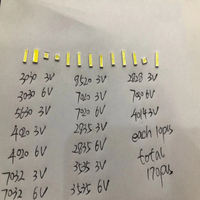 3030 3V
3030 6V
5630 3V
4020 3V
4020 6V
7032 3V
7032 6V
9520 3V
7020 3V
7020 6V
2835 3V
2835 6V
3535 3V
3535 6V
2828 3V
7030 6V
4014 3V
each 10pcs
total
170pcs